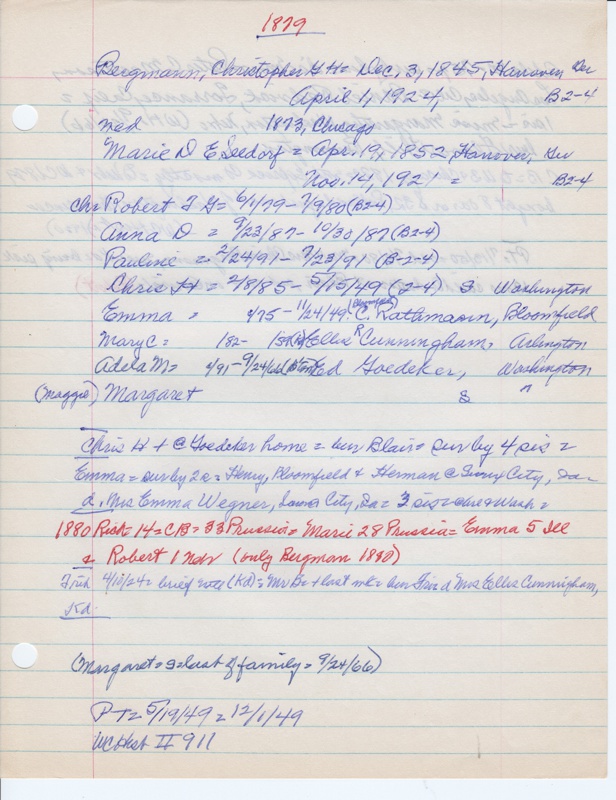 1879
Bergmann, Christopher G H = Dec, 3, 1845, Hanover Ger
April 1, 1924, B2-4
med 1873, Chicago
Marie D E Seedorf = Apr. 19, 1852, Hanover, Ger
Nov. 14, 1921 = B2-4
Ch = Robert F G = 6/1/79 - 7/9/80 (B2-4)
Anna D = 9/23/87 - 10/30/87 (B2-4)
Pauline = 2/24/91 - 7/23/91 (B-2-4)
Chris H = 2/8/85 - 5/15/49 (2-4) S Washington
Emma = /75 - 11/24/49 (Bloomfield) C. Rathamann, Bloomfield
Mary C = 182- Ellis R Cunningham, Arlington
Adela M = /91 - 9/24/66 Ed Goedeker, Washington
(Maggie) Margaret S "
Chris H + @ Goedeker home = bur Blair = sur by 4 sis =
Emma = sur by 2 s = Henry, Bloomfield & Herman @ Sioux City, Ia -
d. Mrs Emma Wegner, Iowa City, Ia = 3 sis =
1880 Rich = 14 = CB = 33 Prussia = Marie 28 Prussia = Emma 5 Ill
& Robert 1 Neb (only Bergman 1880)
Trib 4/10/24 = brief note (Kd) = Mr B = + last wk = bur d Mrs Ellis Cunningham,
Kd.
(Margaret = S = last of family = 9/24/66)
PT = 5/19/49 = 12/1/49
WC Hist II 911